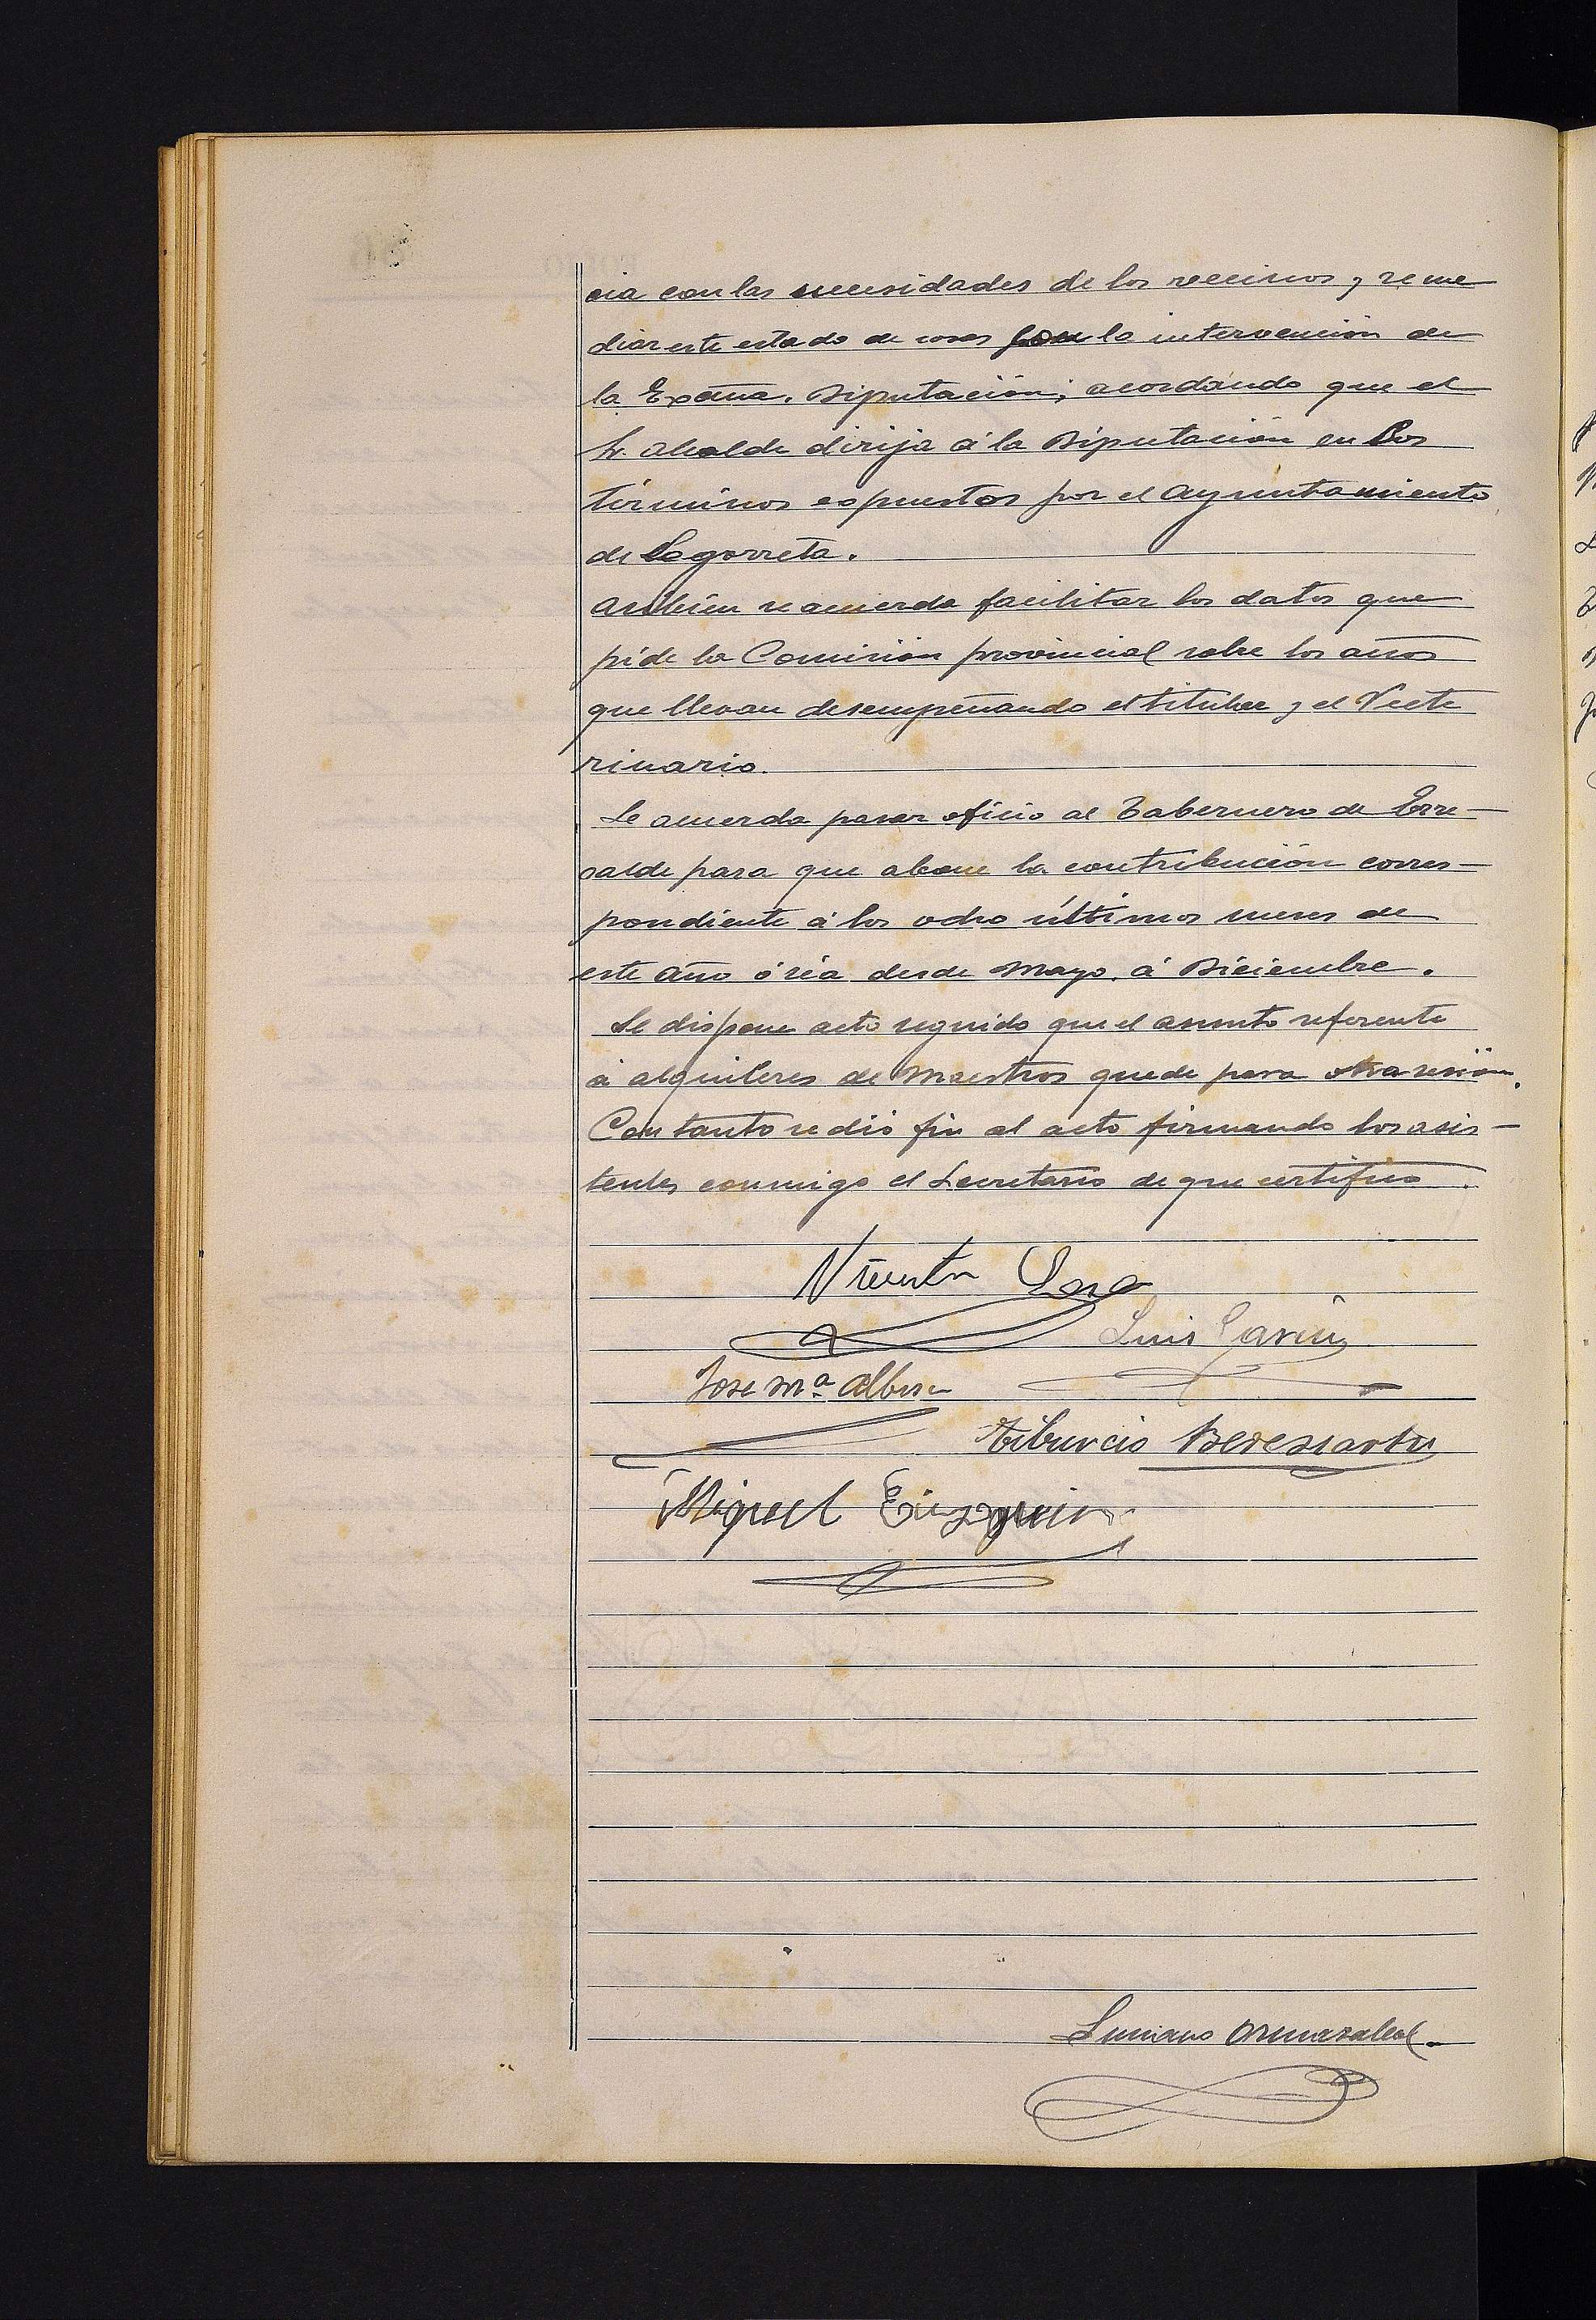 cia con las necesidades de los vecinos y reme
diar este estado de cosas con la intervención de
la Excma. Diputación; acordando que el
Sr. Alcalde dirija á la Diputación en los
términos espuestos por el Ayuntamiento
de Legorreta.
Asibien se acuerda facilitar los datos que
pide la Comisión provincial sobre los años
que llevan desempeñando el titular y el Veete
rinario.
Se acuerda pasar oficio al Tabernero de Erre-
salde para que abone la contribución corres-
pondiente á los ocho últimos meses de
este año ó sea desde Mayo á Diciembre.
Se dispone acto seguido que el asunto referente
á alquileres de Maestros quede para otra sesión.
Con tanto se dió fin al acto firmando los asis-
tentes conmigo el Secretario de que certifico.
Vicente
Luis Garin
Jose Mª
Tiburcio Beresiartu
Miguel
Luciano Ormazabal.